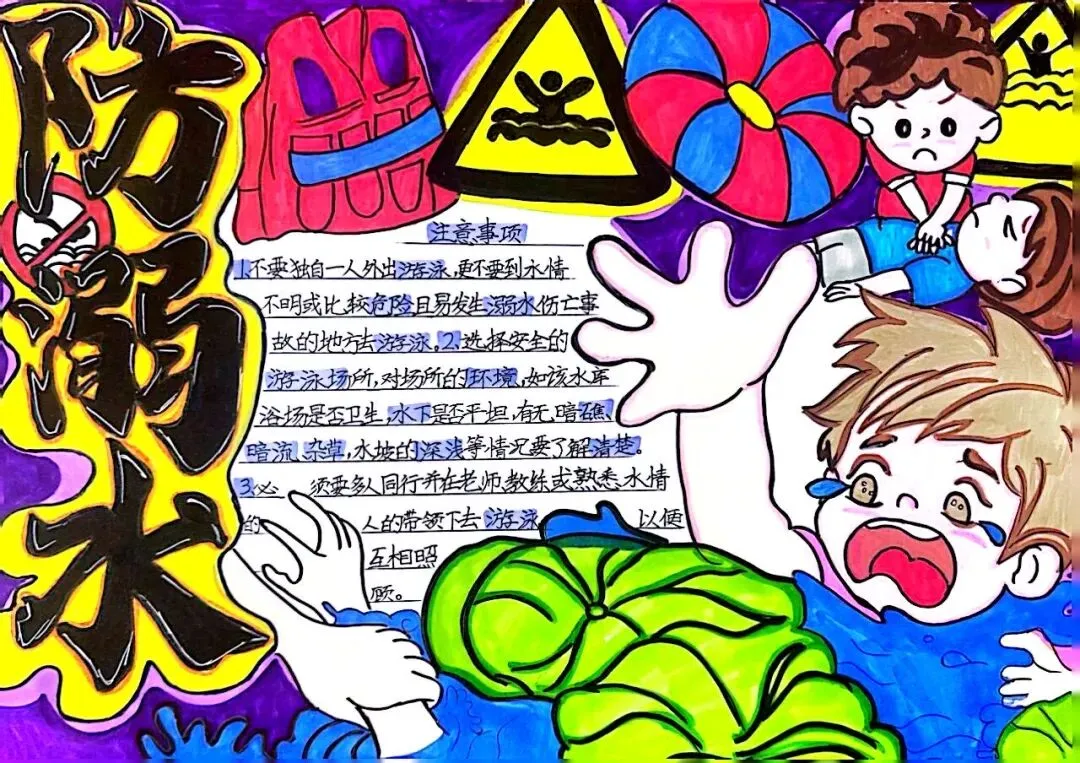 防溺水
注意事项
1.不要独自一人外出游泳,更不要到水情
不明或比较危险且易发生溺水伤亡事
故的地方去游泳。2.选择安全的
游泳场所,对场所的环境,如该水库
浴场是否卫生,水下是否平坦,有无暗礁、
暗流、杂草,水坡的深浅等情况要了解清楚。
3.必 须要多人同行并在老师,教练或熟悉水情
的 人的带领下去游泳 以便
互相照
顾。